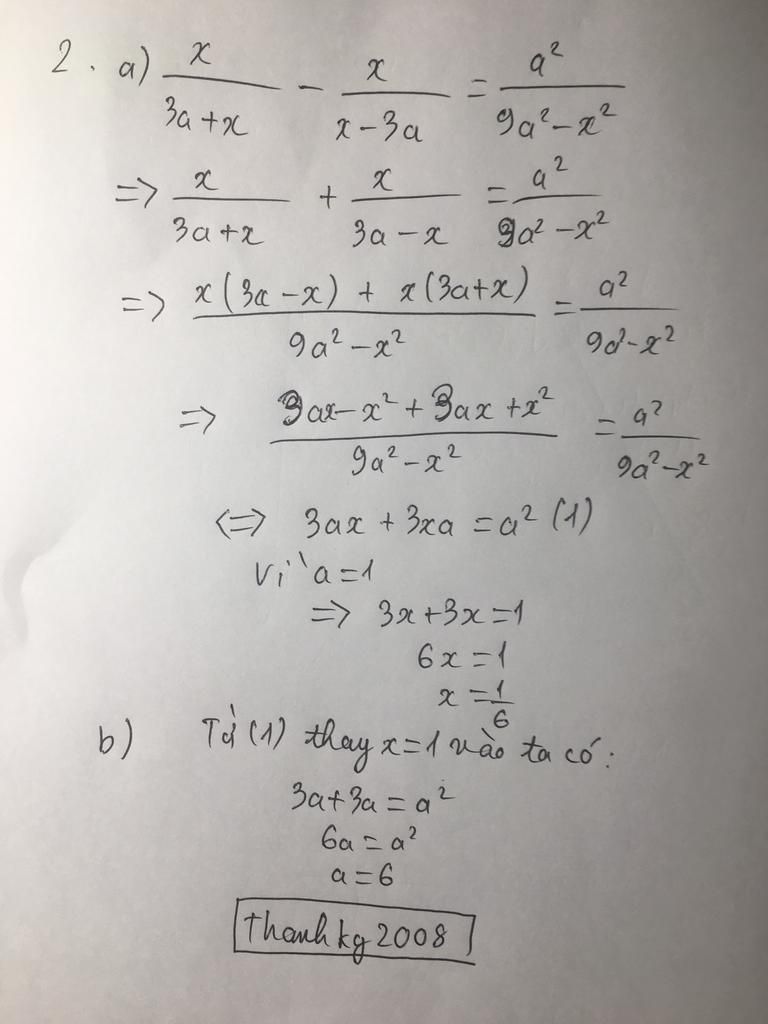 2. a) x/(3a+x) - x/(x-3a) = a²/(9a²-x²)
=> x/(3a+x) + x/(3a-x) = a²/(9a²-x²)
=> (x(3a-x) + x(3a+x))/(9a²-x²) = a²/(9a²-x²)
=> (3ax-x²+3ax+x²)/(9a²-x²) = a²/(9a²-x²)
<=> 3ax + 3xa = a² (1)
Vì a=1
=> 3x+3x=1
6x=1
x=1/6
b) Từ (1) thay x=1 vào ta có:
3a+3a=a²
6a=a²
a=6
thanhkg2008